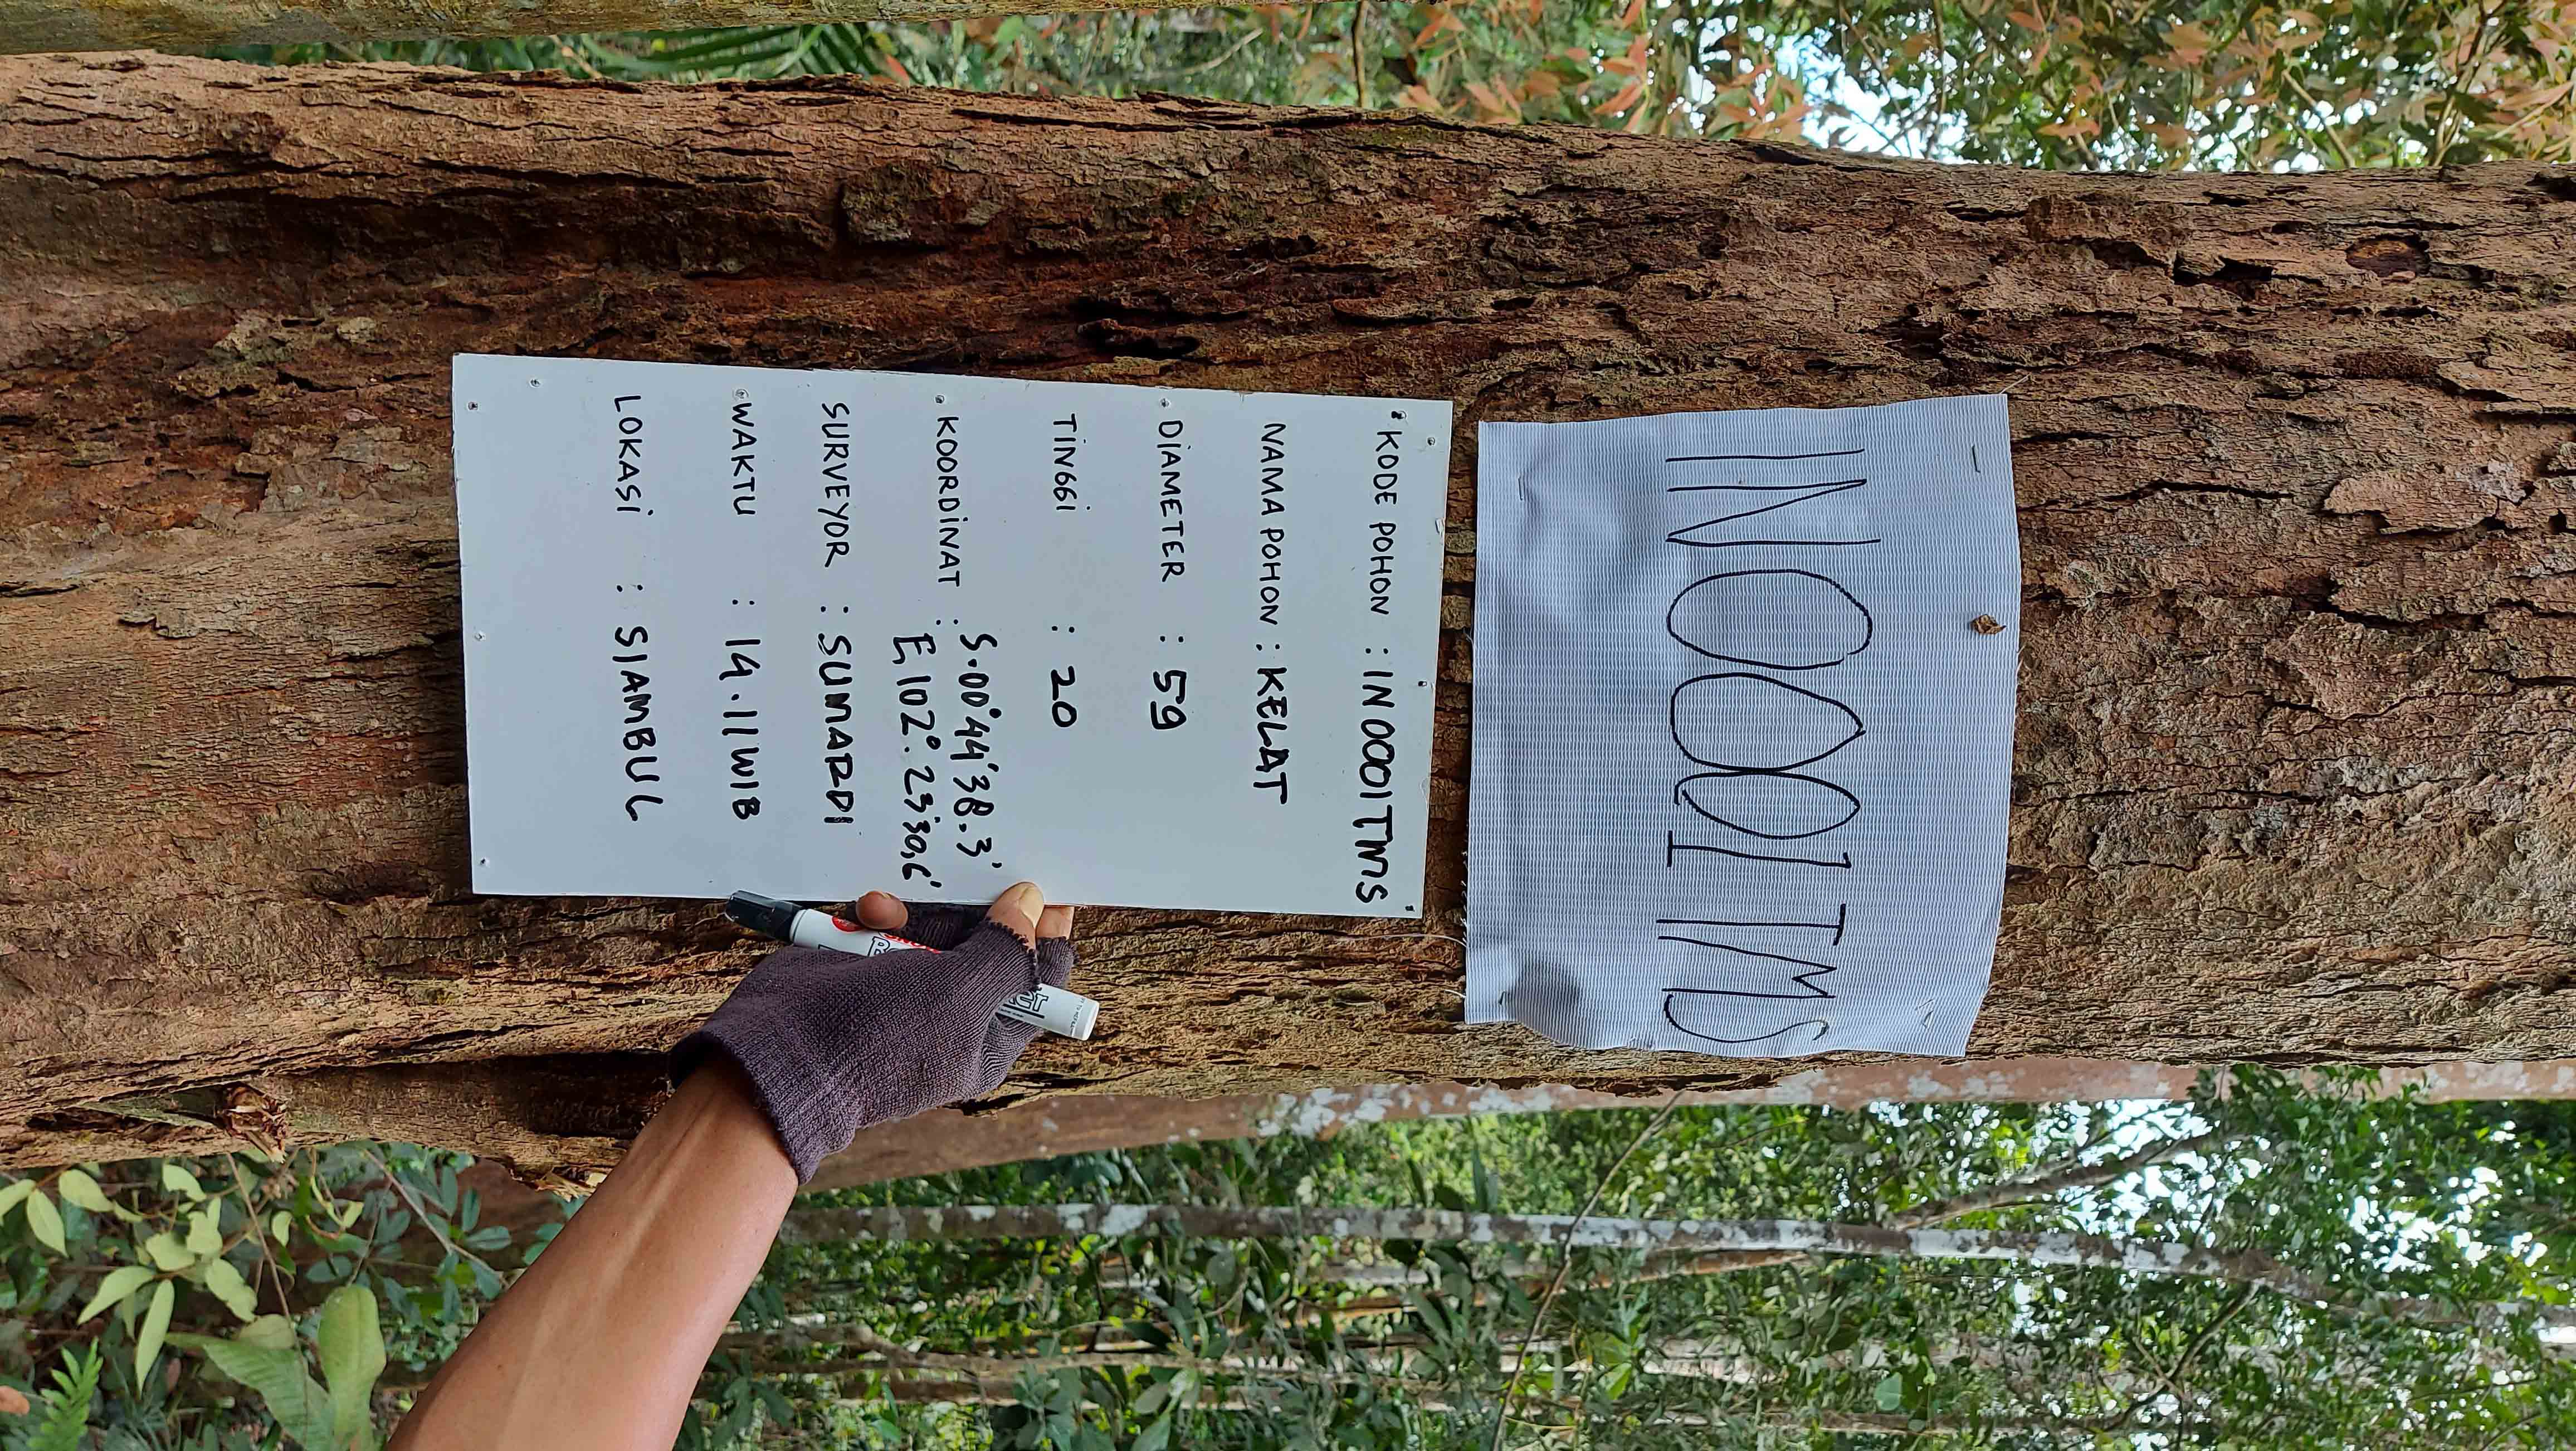 IN0001TMS
KODE POHON : IN0001TMS
NAMA POHON : KELAT
DIAMETER : 59
TINGGI : 20
KOORDINAT : S.00°44'38.3'
E 102°. 23'30,6'
SURVEYOR : SUMARDI
WAKTU : 14.11 WIB
LOKASI : SIAMBUL